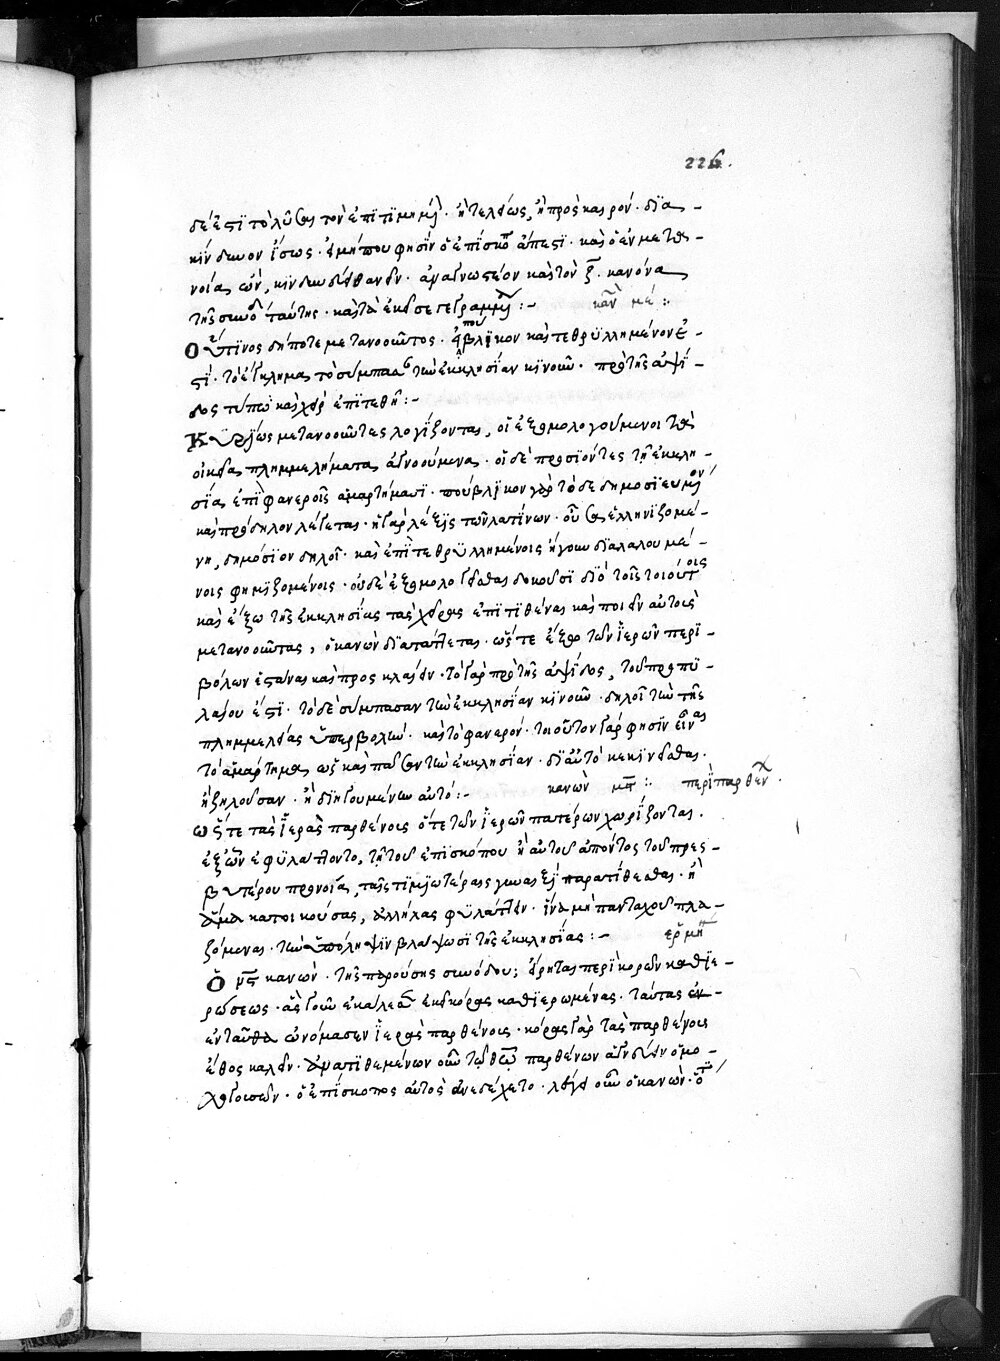 226.
δέ ἐστι τὸ λῦσαι τὸν ἐπιτιμημέν · ἢ τελείως, ἢ πρὸς καιρόν · διὰ
κίνδυνον ἴσως · εἰ μήπου φησὶν ὁ ἐπίσκοπ ἄπεστι · καὶ ὁ ἐν μετα
νοίᾳ ὢν, κινδυνεύει θανεῖν · ἀναγνωστέον καὶ τὸν ζ · κανόνα
τῆς συνόδ ταύτης · καὶ τὰ ἐκεῖσε γεγραμμέν :- καν με :
Οὗτινος δήποτε μετανοοῦντος · πουβλικον καὶ τεθρυλλημένον ἐ
στι · τὸ ἔγκλημα τὸ σύμπασαν τὴν ἐκκλησίαν κινοῦν · πρὸ τῆς ἁψί
δος τύπῳ καὶ χεὶρ ἐπιτεθῇ :-
Κυρίως μετανοοῦντες λογίζονται, οἱ ἐξομολογούμενοι τὰ
οἰκεῖα πλημμελήματα ἀγνοούμενα · οἱ δὲ προσιόντες τῇ ἐκκλη
σίᾳ ἐπὶ φανεροῖς ἁμαρτήμασι · πούβλικον γὰρ τὸ δεδημοσιευμένον
καὶ πρόδηλον λέγεται · ἡ γὰρ λέξις τῶν λατίνων · οὖσα ἑλληνιζομέ
νη, δημόσιον δηλοῖ · καὶ ἐπὶ τεθρυλλημένοις ἤγουν διαλαλουμέ
νοις φημιζομένοις · οὐδὲ ἐξομολογεῖσθαι δοκοῦσι διὸ τοῖς τοιούτοις
καὶ ἔξω τῆς ἐκκλησίας τὰς χεῖρας ἐπιτιθέναι καὶ ποιεῖν αὐτοὺς
μετανοοῦντας, ὁ κανὼν διατάττεται · ὥστε ἔξω τῶν ἱερῶν περι
βόλων ἑστάναι καὶ προσκλαίειν · τὸ γὰρ πρὸ τῆς ἁψίδος, τοῦ προπυ
λαίου ἐστί · τὸ δὲ σύμπασαν τὴν ἐκκλησίαν κινοῦν · δηλοῖ τὴν τῆς
πλημμελείας ὑπερβολήν · καὶ τὸ φανερόν · τοιοῦτον γάρ φησιν εἶναι
τὸ ἁμάρτημα ὡς καὶ πᾶσαν τὴν ἐκκλησίαν · δι' αὐτὸ κεκινῆσθαι ·
ἢ ζηλοῦσαν · ἢ διηγουμένην αὐτό :- κανὼν μς : περὶ παρθέν
ὥστε τὰς ἱερὰς παρθένους ὅτε τῶν ἱερῶν πατέρων χωρίζονται ·
ἐξ ὧν ἐφυλάττοντο, τῇ τοῦ ἐπισκόπου ἢ αὐτοῦ ἀπόντος τοῦ πρες
βυτέρου προνοίᾳ, ταῖς τιμιωτέραις γυναιξὶ παρατίθεσθαι · ἢ
ἅμα κατοικούσας, ἀλλήλας φυλάττειν · ἵνα μὴ πανταχοῦ πλα
ζόμεναι · τὴν ὑπόληψιν βλάψωσι τῆς ἐκκλησίας :- ἑρμη
Ὁ κανὼν · τῆς παρούσης συνόδου · εἴρηται περὶ κορῶν καθιε
ρώσεως · ἃς γοῦν ἐκάλεσεν ἐκεῖ κόρας καθιερωμένας · ταύτας ἐν
ἐνταῦθα ὠνόμασεν ἱερὰς παρθένους · κόρας γὰρ τὰς παρθένους
ἔθος καλεῖν · ἀνατιθεμένων οὖν τῷ θεῷ παρθένων ἁγνεύειν ὁμο
λογουσῶν · ὁ ἐπίσκοπος αὐτὸς ἀνεδέχετο · λέγει οὖν ὁ κανὼν · ὅτι